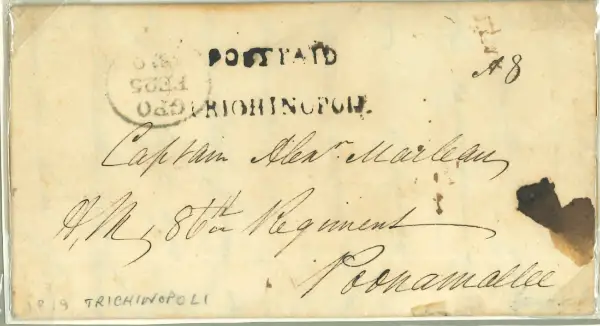 POST PAID
A 8
GPO
FE 25
TRICHINOPOLY.
Captain Alexr. Maclean
H. M, 86th Regiment
Poonamallee
P/9 TRICHINOPOLI